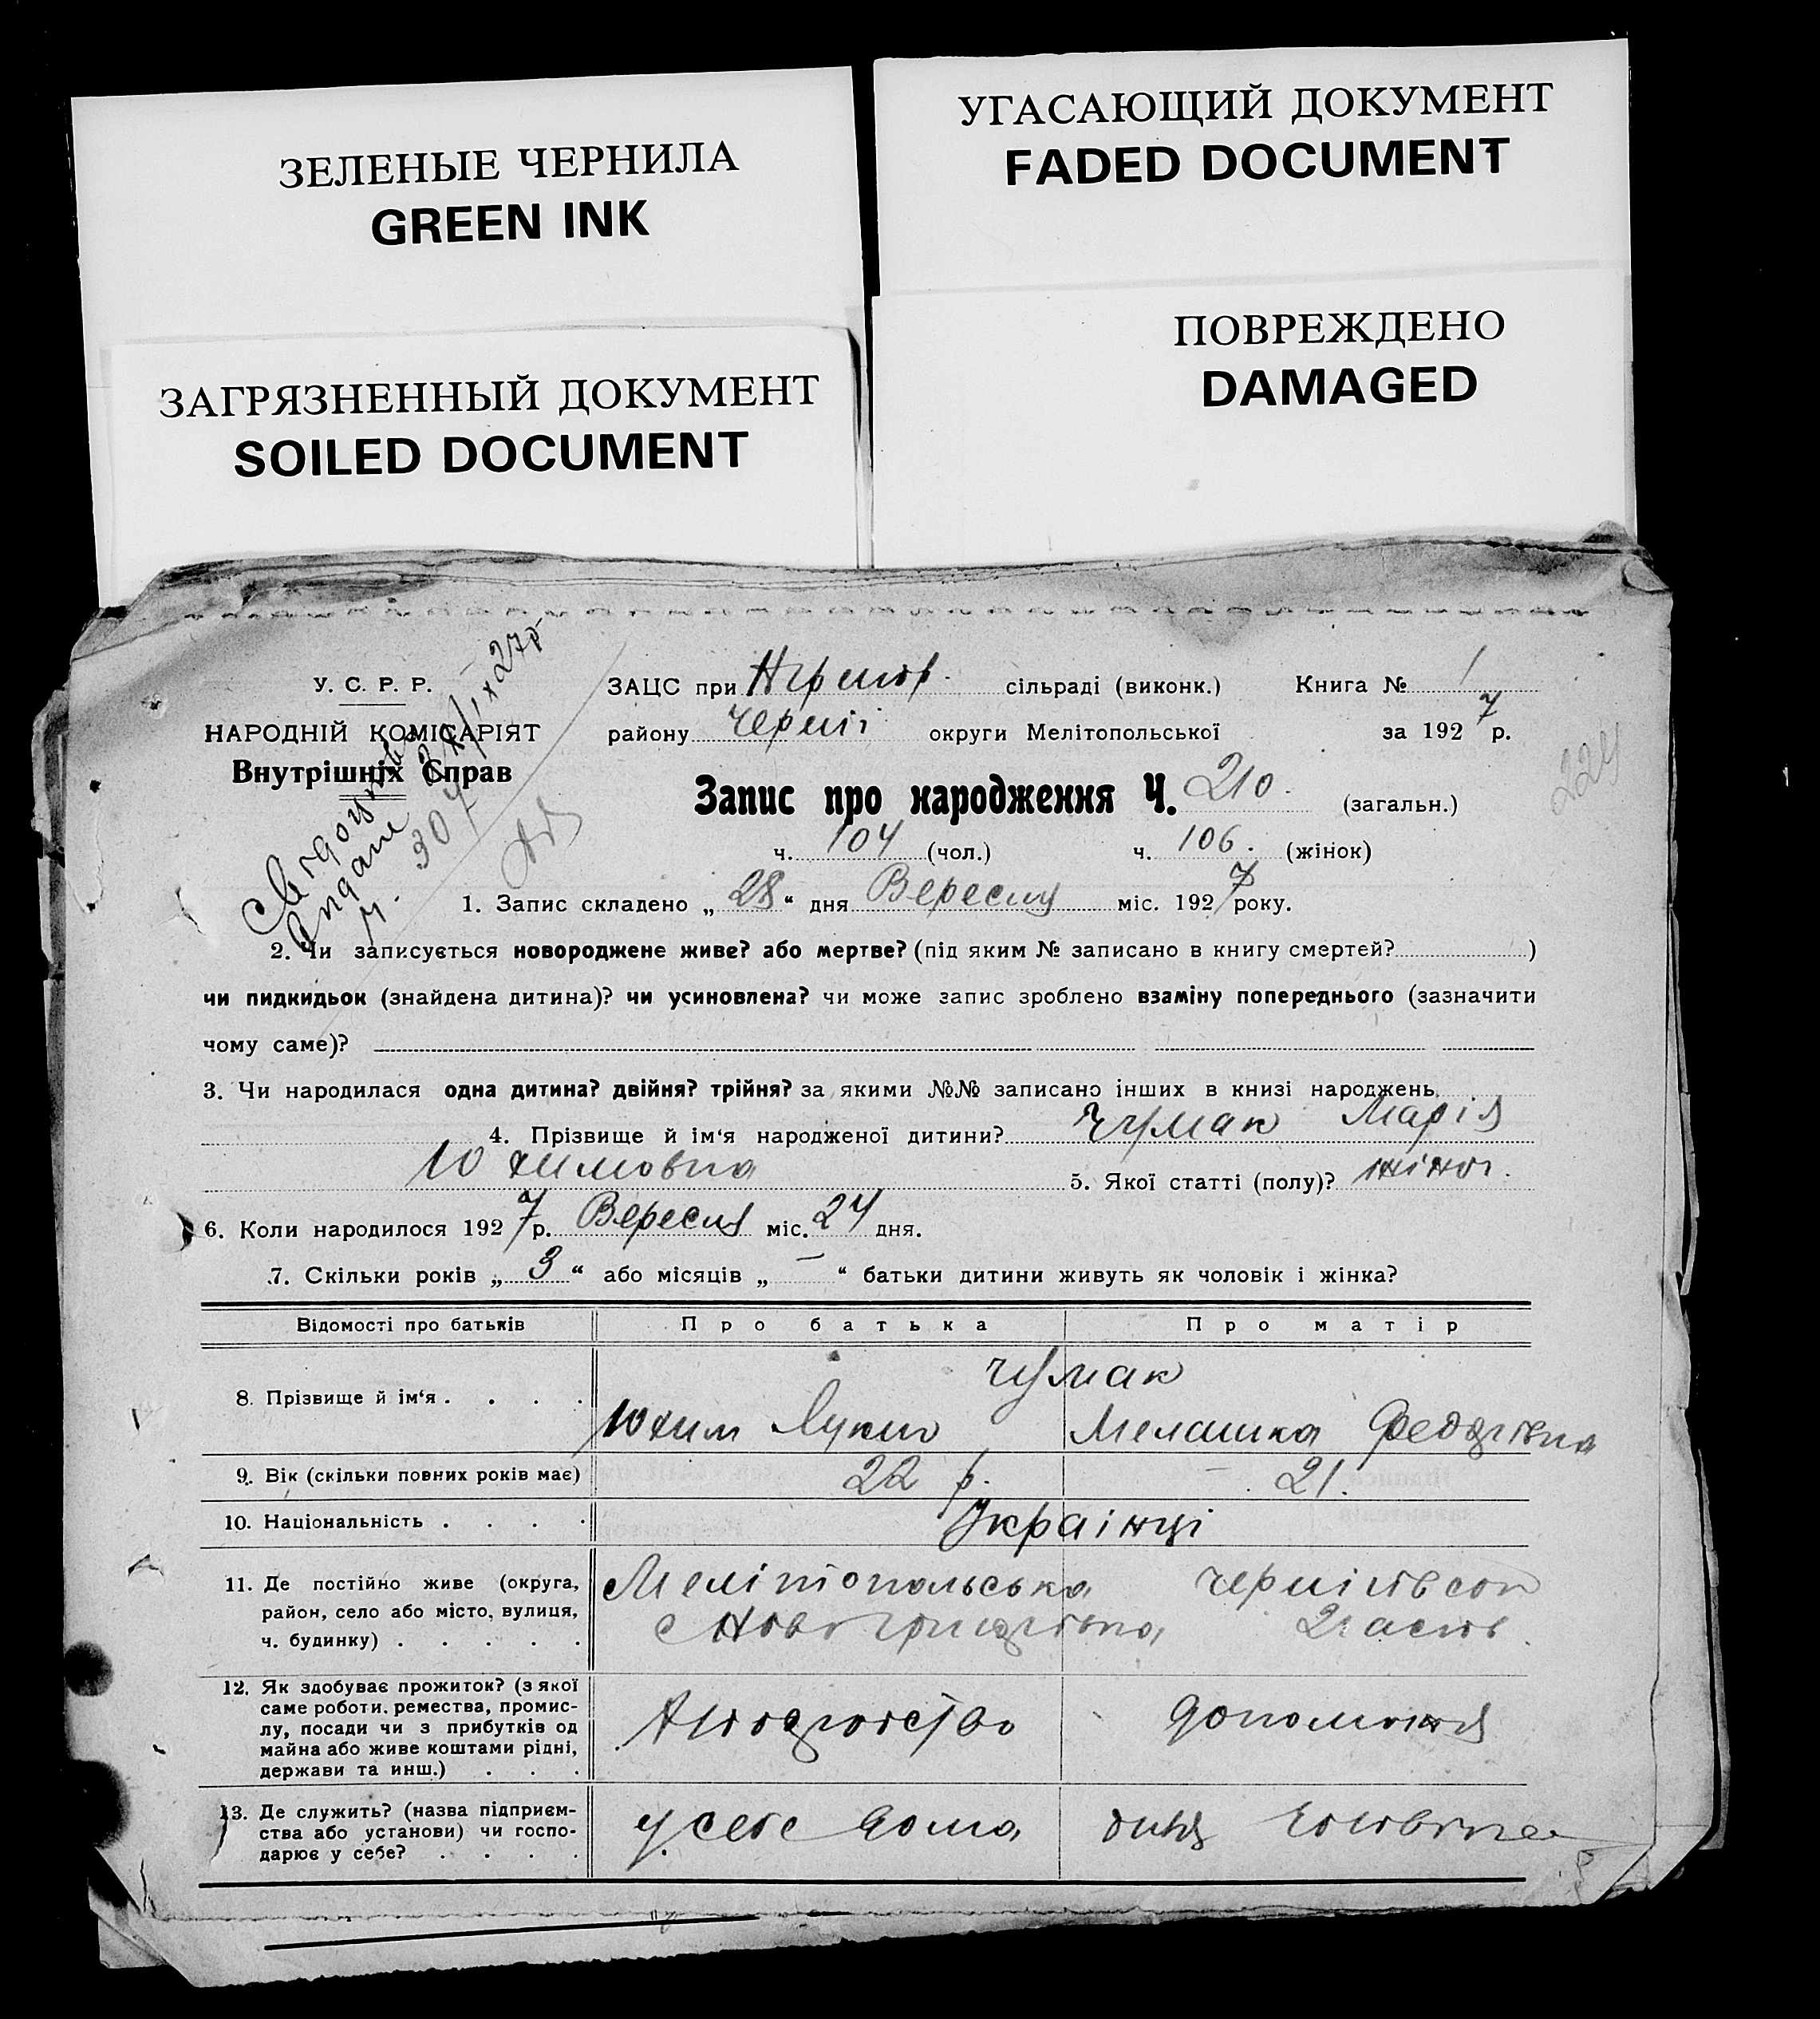 ЗЕЛЕНЫЕ ЧЕРНИЛА
GREEN INK
УГАСАЮЩИЙ ДОКУМЕНТ
FADED DOCUMENT
ЗАГРЯЗНЕННЫЙ ДОКУМЕНТ
SOILED DOCUMENT
ПОВРЕЖДЕНО
DAMAGED
У. С. Р. Р.
НАРОДНІЙ КОМІСАРІЯТ
Внутрішніх Справ
ЗАЦС при сільраді (виконк.) Книга № 1
району Черніг округи Мелітопольської за 1927 р.
224
Запис про народження Ч. 210. (загальн.)
ч. 104 (чол.) ч. 106. (жінок)
1. Запис складено „28“ дня Вересня міс. 1927 року.
2. Чи записується новороджене живе? або мертве? (під яким № записано в книгу смертей? )
чи пидкидьок (знайдена дитина)? чи усиновлена? чи може запис зроблено взаміну попереднього (зазначити
чому саме)?
3. Чи народилася одна дитина? двійня? трійня? за якими №№ записано інших в книзі народжень
4. Прізвище й ім'я народженої дитини? Чумак Марія
Юхимовна 5. Якої статті (полу)? жіноч.
6. Коли народилося 1927 р. Вересня міс. 24 дня.
7. Скільки років „3“ або місяців „—“ батьки дитини живуть як чоловік і жінка?
Відомості про батьків Про батька Про матір
8. Прізвище й ім'я . . . . Чумак
Юхим Лукич Мелашка Федорівна
9. Вік (скільки повних років має) 22 р. 21.
10. Національність . . . . Українці
11. Де постійно живе (округа,
район, село або місто, вулиця,
ч. будинку) . . . . .
Мелітопольська
с Новогригорівка
12. Як здобуває прожиток? (з якої
саме роботи. ремества, промис-
лу, посади чи з прибутків од
майна або живе коштами рідні,
держави та инш.) . . .
13. Де служить? (назва підприєм-
ства або установи) чи госпо-
дарює у себе? . . . .
у себе дома